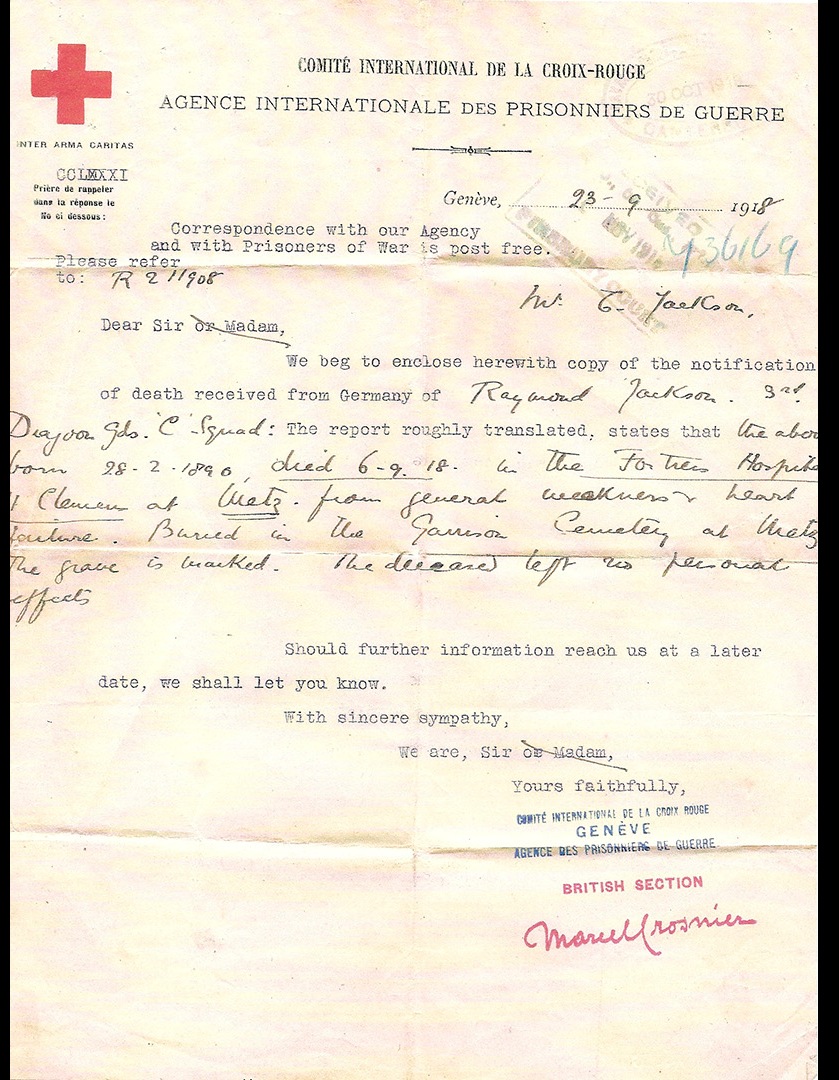 COMITÉ INTERNATIONAL DE LA CROIX-ROUGE
AGENCE INTERNATIONALE DES PRISONNIERS DE GUERRE
INTER ARMA CARITAS
30 OCT 1918
CCLXXXI
Prière de rappeler
dans la réponse le
No ci dessous :
Genève, 23-9 1918
RECEIVED
NOV 191
436169
Correspondence with our Agency
and with Prisoners of War is post free.
Please refer
to: R 211908
Mr. E. Jackson,
Dear Sir or Madam,
We beg to enclose herewith copy of the notification
of death received from Germany of Raymond Jackson. 3rd.
Dragoon Gds. "C" Squad: The report roughly translated, states that the abov
born 28-2-1890, died 6-9-18. in the Fortress Hospita
St Clemens at Metz. from general weakness & heart
failure. Buried in the Garrison Cemetery at Metz
The grave is marked. The deceased left no personal
effects
Should further information reach us at a later
date, we shall let you know.
With sincere sympathy,
We are, Sir or Madam,
Yours faithfully,
COMITÉ INTERNATIONAL DE LA CROIX ROUGE
GENÈVE
AGENCE DES PRISONNIERS DE GUERRE
BRITISH SECTION
Marcel Crosnier